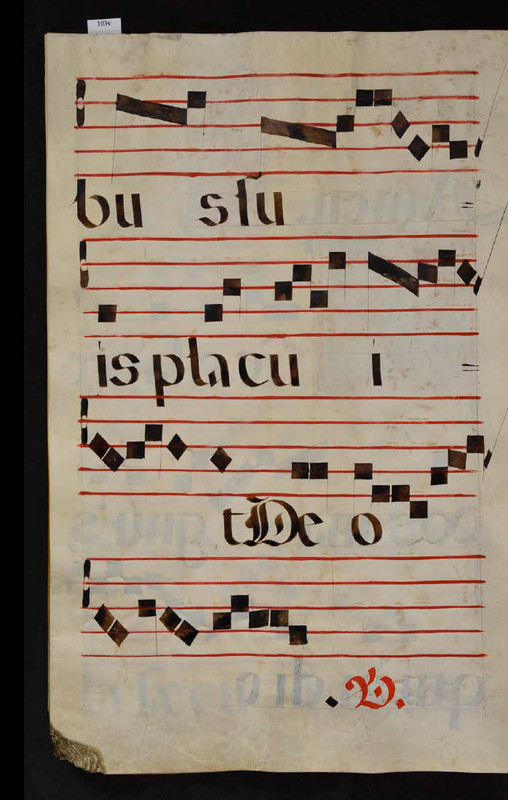 bu ssu
is placu i =
t Deo
. V.